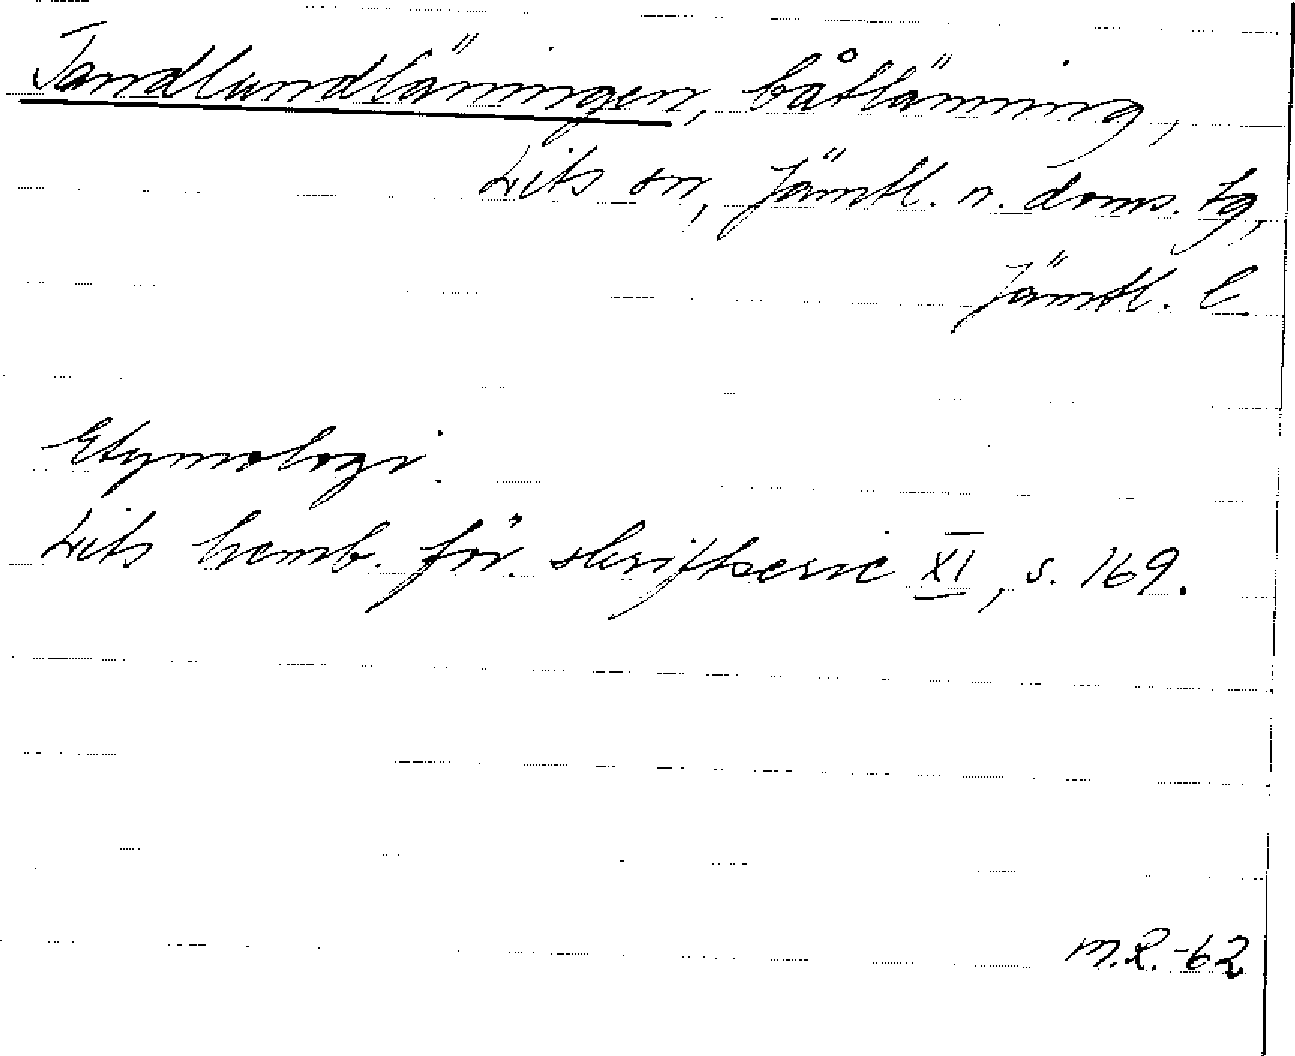 Tandlundläningen, båtläning,
Lits sn, Jämtl. n. doms. tg,
Jämtl. l.
Etymologi:
Lits hemb. för. skriftserie XI, s. 169.
M.R.-62